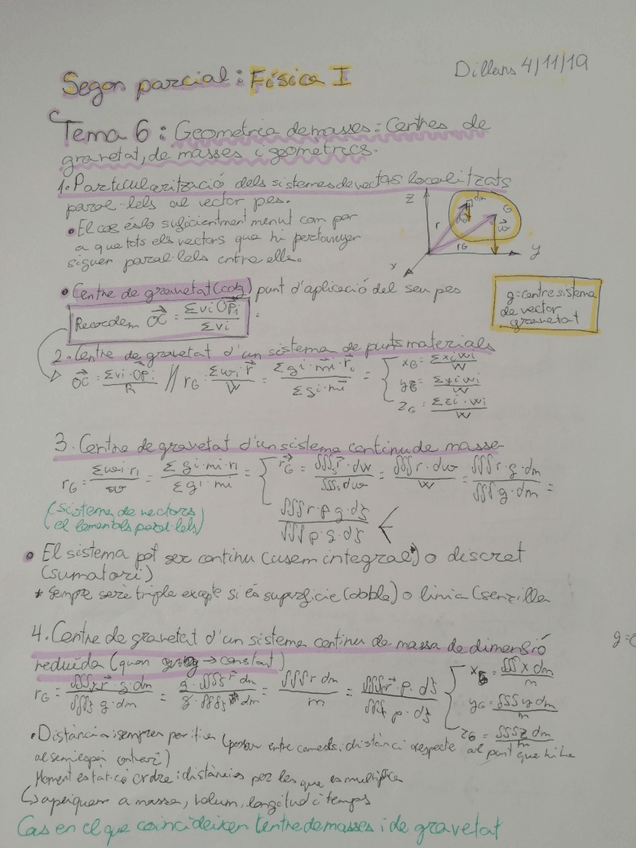 Dilluns 4/11/19
Segon parcial: Física I
Tema 6: Geometria de masses: Centres de
gravetat, de masses i geometrics.
1. Particularització dels sistemes de vectors localitzats
paral·lels al vector pes.
• El cos és lo suficientment menut com per
a que tots els vectors que hi pertanyen
siguen paral·lels entre ells.
z dm G r rG w y x
• Centre de gravetat (cdg) punt d'aplicació del seu pes
g = centre sistema
de vector
gravetat
Recordem OC = Σvi OPi / Σvi
2. Centre de gravetat d'un sistema de punts materials
OC = Σvi·OPi / R // rG = Σwi·r / W = Σgi·mi·ri / Σgi·mi = { xG = Σxiwi / W
yG = Σyiwi / W
zG = Σzi·wi / W
3. Centre de gravetat d'un sistema continu de masse
rG = Σwi·ri / w = Σgi·mi·ri / Σgi·mi = { rG = ∭r·dw / ∭dw = ∭r·dw / W = ∭r·g·dm / ∭g·dm =
∭r·ρ·g·dζ / ∭ρ·g·dζ
(sistema de vectors
elementals paral·lels)
• El sistema pot ser continu (usem integral*) o discret
(sumatori)
* Sempre serà triple excepte si és superfície (doble) o línia (senzilla
4. Centre de gravetat d'un sistema continu de massa de dimensió
reduïda (quan g → constant)
g=
rG = ∭r·g·dm / ∭g·dm = g·∭r dm / g·∭dm = ∭r dm / m = ∭r·ρ·dζ / ∭ρ·dζ { xG = ∭x dm / m
yG = ∭y dm / m
zG = ∭z dm / m
• Distància: sempre positiva respecte al
al
Moment estàtic ordre: distàncies per les que es multiplica
↳ apliquem a massa, volum, longitud i temps
Cas en el que coincideixen centre de masses i de gravetat